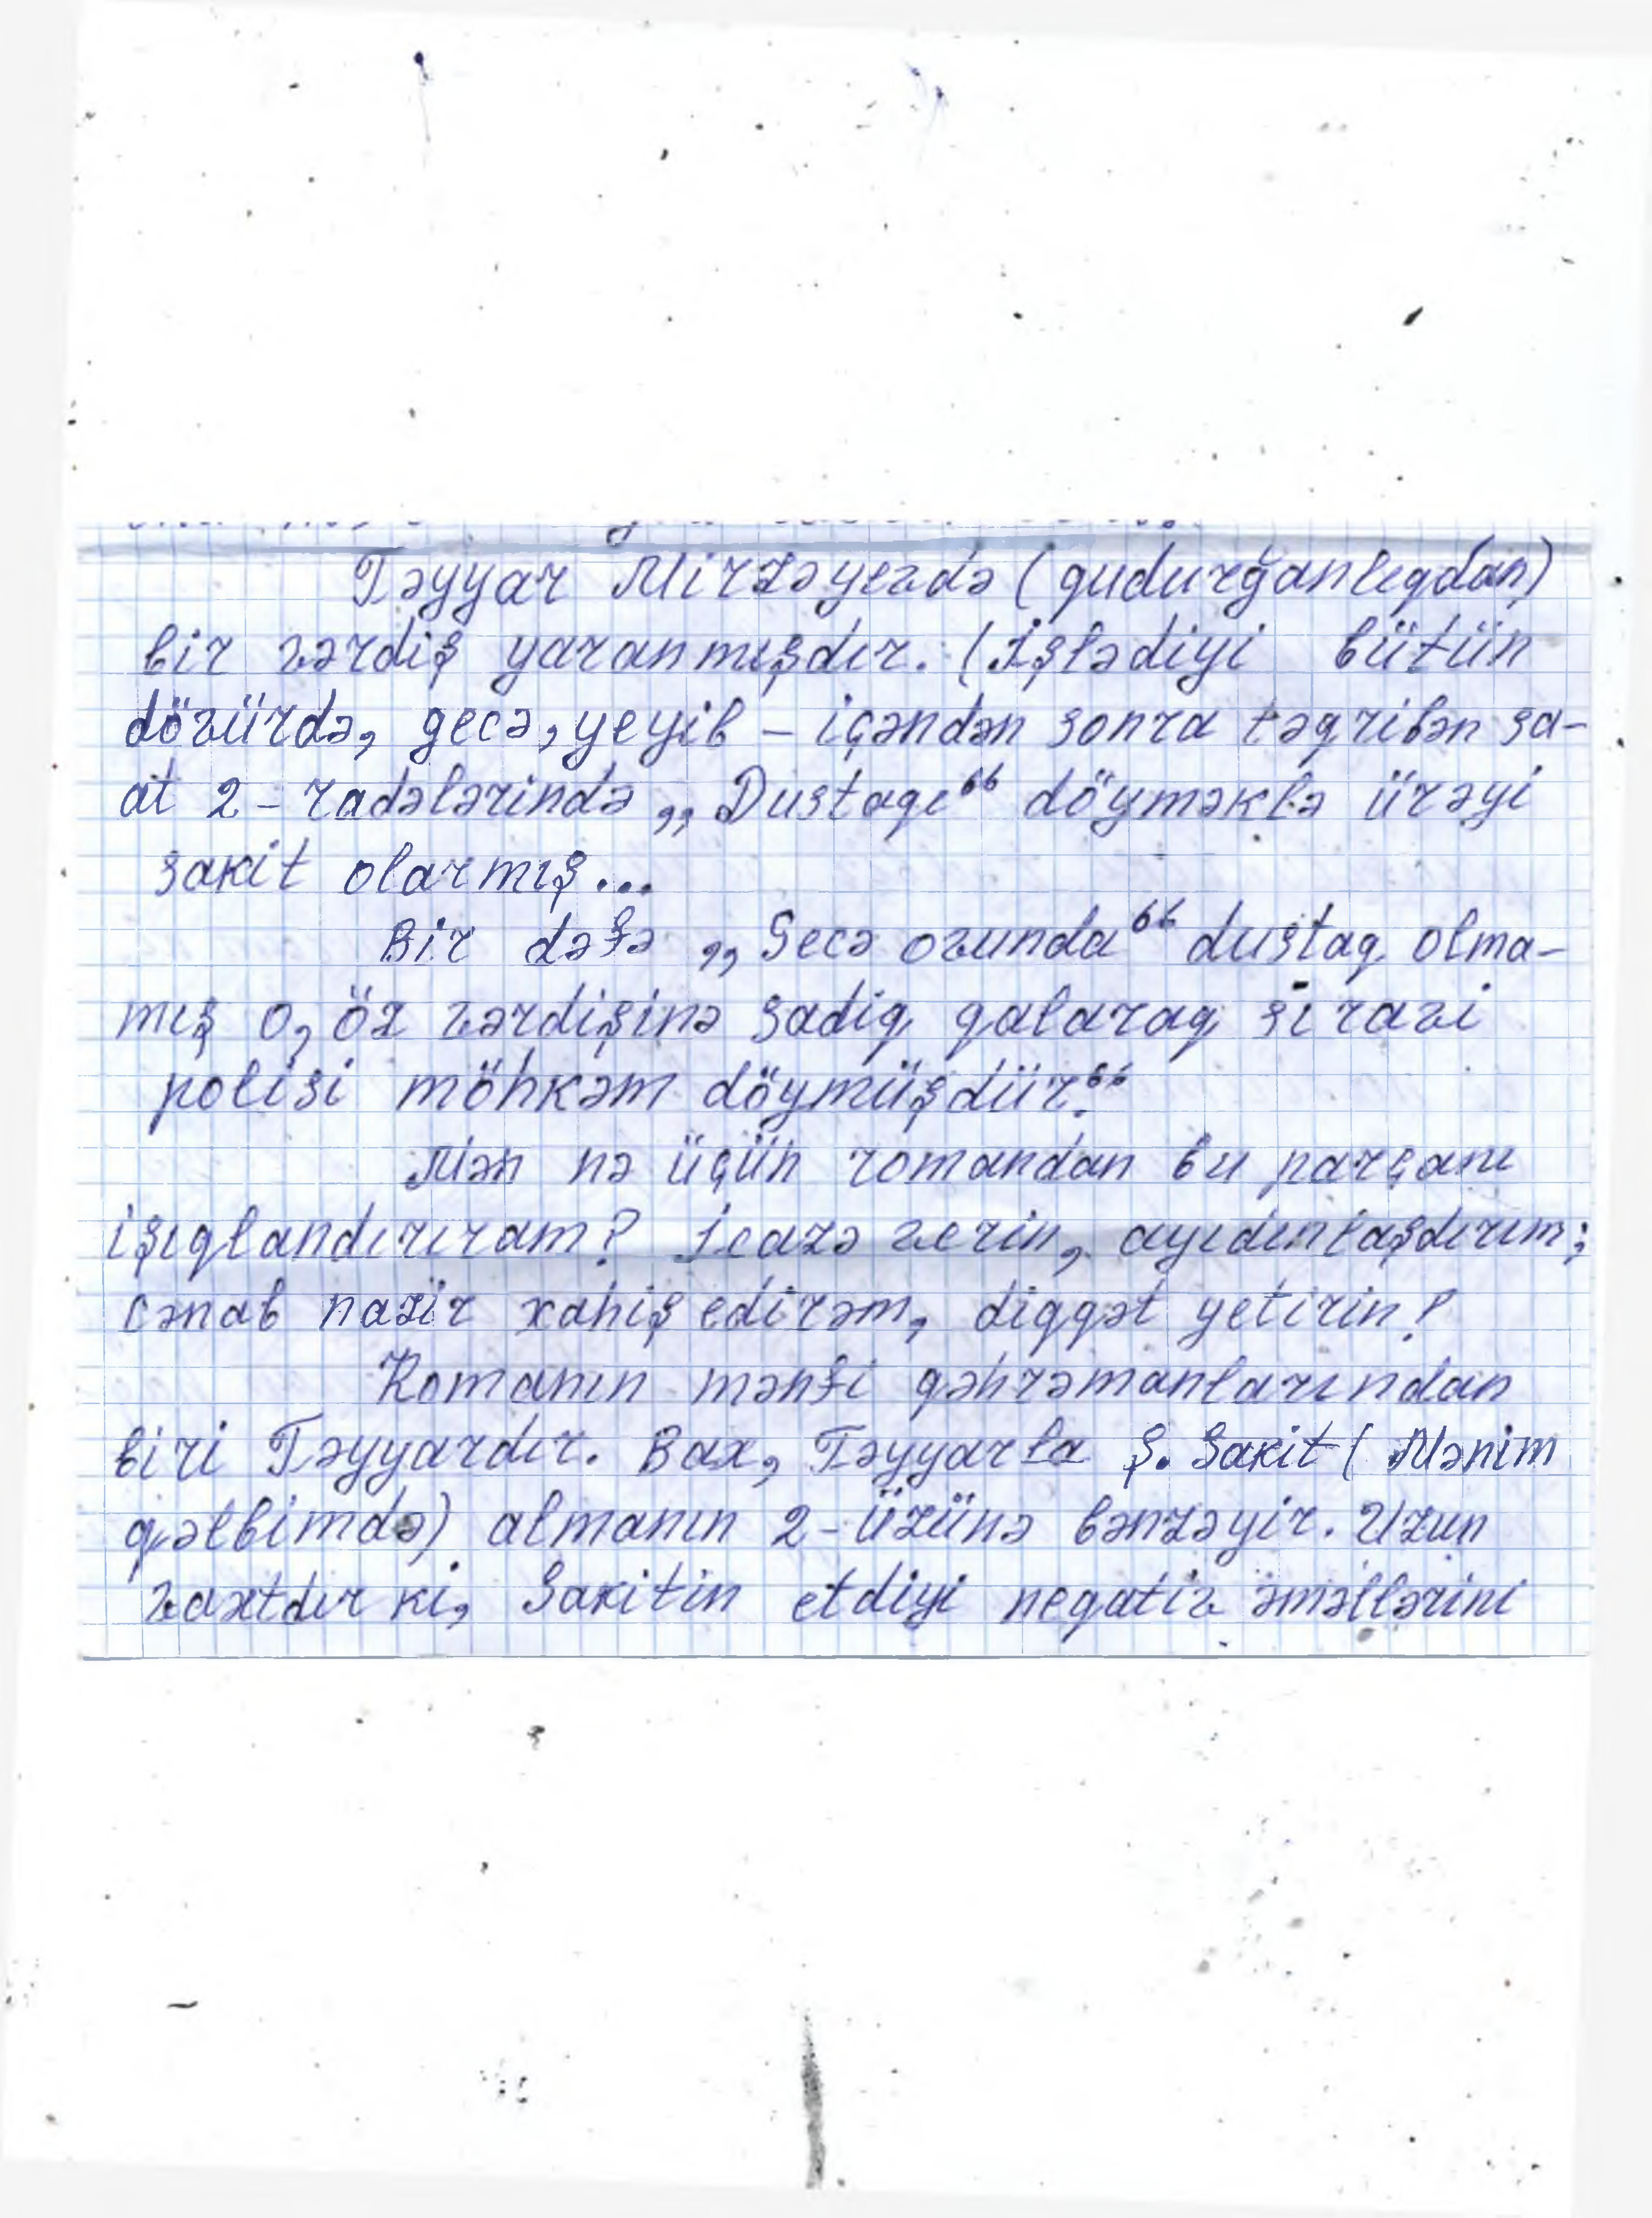 Təyyar Mirzəyevdə (qudurğanlıqdan)
bir vərdiş yaranmışdır. (İşlədiyi bütün
dövürdə, gecə, yeyib – içəndən sonra təqribən sa-
at 2 – radələrində ,, Dustaqı" döyməklə ürəyi
sakit olarmış...
Bir dəfə ,, Gecə ovunda" dustaq olma-
mış o, öz vərdişinə sadiq qalaraq sıravi
polisi möhkəm döymüşdür."
Mən nə üçün romandan bu parçanı
işıqlandırıram? İcazə verin, ayıdınlaşdırım;
Cənab nazir xahiş edirəm, diqqət yetirin!
Romanın mənfi qəhrəmanlarından
biri Təyyardır. Bax, Təyyarla Ş. Sakit ( Mənim
qəlbimdə) almanın 2 – üzünə bənzəyir. Uzun
vaxtdır ki, Sakitin etdiyi neqativ əməllərini